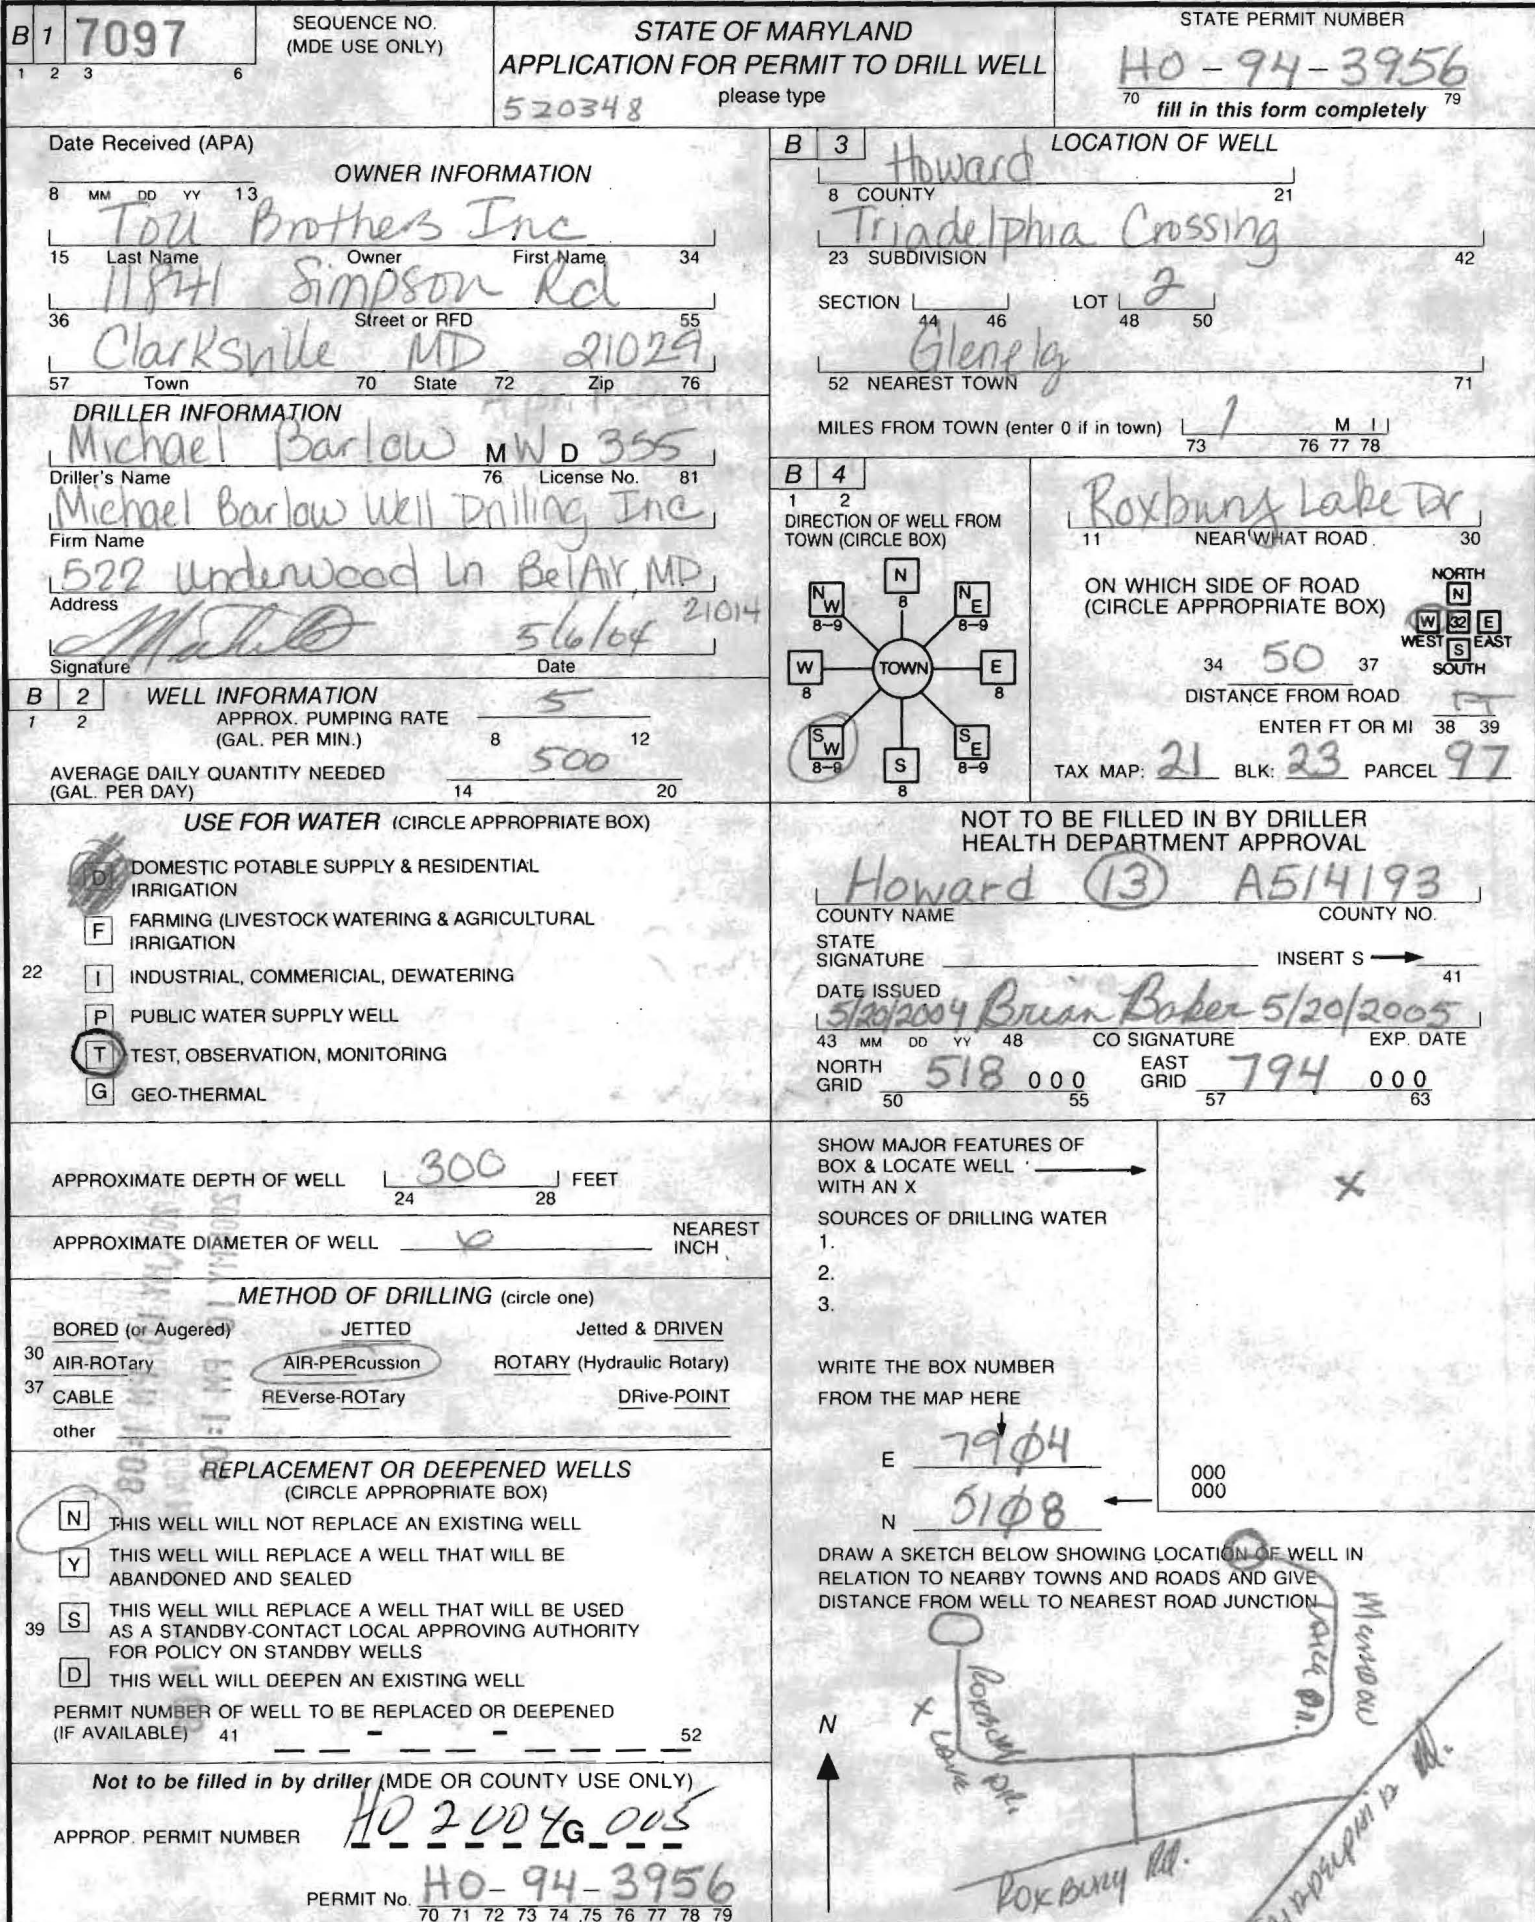 B 1 7097
1 2 3 6
SEQUENCE NO.
(MDE USE ONLY)
STATE OF MARYLAND
APPLICATION FOR PERMIT TO DRILL WELL
please type
520348
STATE PERMIT NUMBER
HO-94-3956
70 fill in this form completely 79
Date Received (APA)
8 MM DD YY 13
OWNER INFORMATION
Toll Brothers Inc
15 Last Name Owner First Name 34
11841 Simpson Rd
36 Street or RFD 55
Clarksville MD 21029
57 Town 70 State 72 Zip 76
DRILLER INFORMATION
Michael Barlow MWD 355
Driller's Name 76 License No. 81
Michael Barlow Well Drilling Inc
Firm Name
522 Underwood Ln BelAir, MD
Address 21014
5/6/04
Signature Date
B 2 WELL INFORMATION
1 2 APPROX. PUMPING RATE
(GAL. PER MIN.) 5
8 12
AVERAGE DAILY QUANTITY NEEDED
(GAL. PER DAY) 500
14 20
USE FOR WATER (CIRCLE APPROPRIATE BOX)
D DOMESTIC POTABLE SUPPLY & RESIDENTIAL
IRRIGATION
F FARMING (LIVESTOCK WATERING & AGRICULTURAL
IRRIGATION
22 I INDUSTRIAL, COMMERICIAL, DEWATERING
P PUBLIC WATER SUPPLY WELL
T TEST, OBSERVATION, MONITORING
G GEO-THERMAL
APPROXIMATE DEPTH OF WELL 300 FEET
24 28
APPROXIMATE DIAMETER OF WELL 6 NEAREST
INCH
METHOD OF DRILLING (circle one)
BORED (or Augered) JETTED Jetted & DRIVEN
30 AIR-ROTary AIR-PERcussion ROTARY (Hydraulic Rotary)
37 CABLE REVerse-ROTary DRive-POINT
other
REPLACEMENT OR DEEPENED WELLS
(CIRCLE APPROPRIATE BOX)
N THIS WELL WILL NOT REPLACE AN EXISTING WELL
Y THIS WELL WILL REPLACE A WELL THAT WILL BE
ABANDONED AND SEALED
39 S THIS WELL WILL REPLACE A WELL THAT WILL BE USED
AS A STANDBY-CONTACT LOCAL APPROVING AUTHORITY
FOR POLICY ON STANDBY WELLS
D THIS WELL WILL DEEPEN AN EXISTING WELL
PERMIT NUMBER OF WELL TO BE REPLACED OR DEEPENED
(IF AVAILABLE) 41 - - 52
Not to be filled in by driller (MDE OR COUNTY USE ONLY)
APPROP. PERMIT NUMBER HO 2004G005
PERMIT No. HO-94-3956
70 71 72 73 74 75 76 77 78 79
B 3 LOCATION OF WELL
Howard
8 COUNTY 21
Triadelphia Crossing
23 SUBDIVISION 42
SECTION LOT 2
44 46 48 50
Glenelg
52 NEAREST TOWN 71
MILES FROM TOWN (enter 0 if in town) 1 M I
73 76 77 78
B 4
1 2
DIRECTION OF WELL FROM
TOWN (CIRCLE BOX)
N
8
NW NE
8-9 8-9
W TOWN E
8 8
SW SE
8-9 8-9
S
8
Roxbury Lake Dr
11 NEAR WHAT ROAD 30
ON WHICH SIDE OF ROAD
(CIRCLE APPROPRIATE BOX)
NORTH
N
W 32 E
WEST S EAST
SOUTH
34 50 37
DISTANCE FROM ROAD
ENTER FT OR MI FT
38 39
TAX MAP: 21 BLK: 23 PARCEL 97
NOT TO BE FILLED IN BY DRILLER
HEALTH DEPARTMENT APPROVAL
Howard (13) A514193
COUNTY NAME COUNTY NO.
STATE
SIGNATURE INSERT S
41
DATE ISSUED
5/20/2004 Brian Baker 5/20/2005
43 MM DD YY 48 CO SIGNATURE EXP. DATE
NORTH
GRID 518 000
50 55
EAST
GRID 794 000
57 63
SHOW MAJOR FEATURES OF
BOX & LOCATE WELL
WITH AN X
X
SOURCES OF DRILLING WATER
1.
2.
3.
WRITE THE BOX NUMBER
FROM THE MAP HERE
E 7904
N 5108
000
000
DRAW A SKETCH BELOW SHOWING LOCATION OF WELL IN
RELATION TO NEARBY TOWNS AND ROADS AND GIVE
DISTANCE FROM WELL TO NEAREST ROAD JUNCTION
N
X
Roxbury
Dr.
Meadow
Dr.
Roxbury Rd.
Triadelphia Rd.